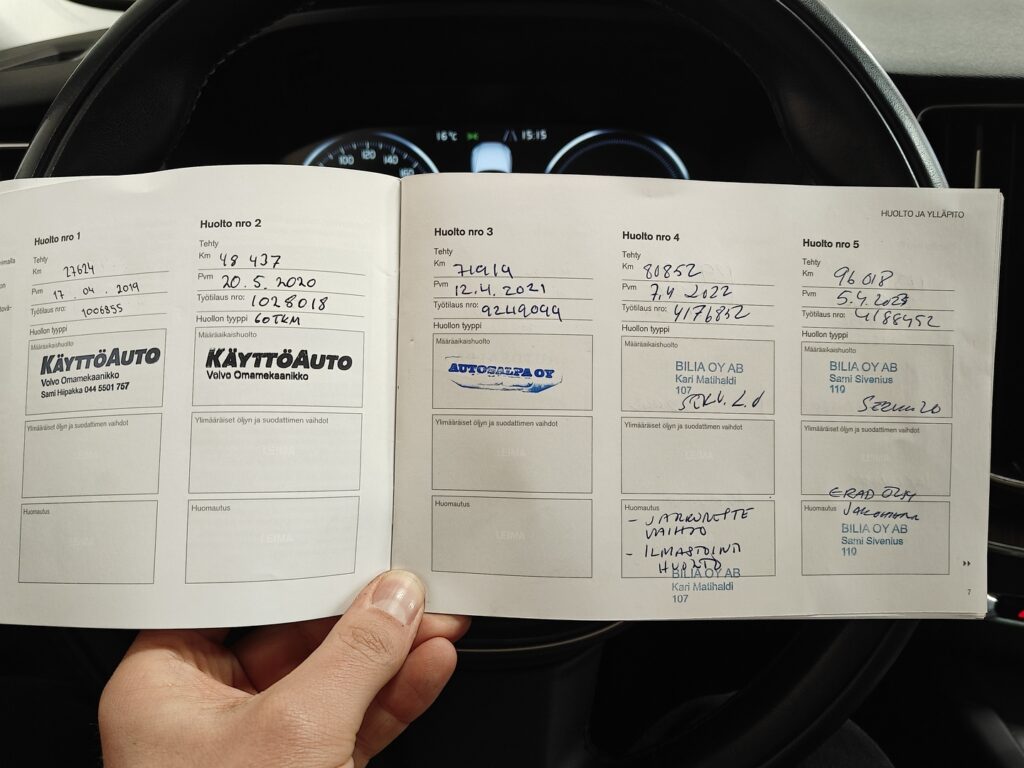 16°C 15:15
100 120 140 160
HUOLTO JA YLLÄPITO
Huolto nro 1
Tehty
Km 27624
Pvm 17.04.2019
Työtilaus nro: 1006855
Huollon tyyppi
Määräaikaishuolto
KÄYTTÖAUTO
Volvo Omamekaanikko
Sami Hiipakka 044 5501 767
Ylimääräiset öljyn ja suodattimen vaihdot
LEIMA
Huomautus
Huolto nro 2
Tehty
Km 48 437
Pvm 20.5.2020
Työtilaus nro: 1028018
Huollon tyyppi 60TKM
Määräaikaishuolto
KÄYTTÖAUTO
Volvo Omamekaanikko
Ylimääräiset öljyn ja suodattimen vaihdot
LEIMA
Huomautus
LEIMA
Huolto nro 3
Tehty
Km 71919
Pvm 12.4.2021
Työtilaus nro: 9249099
Huollon tyyppi
Määräaikaishuolto
AUTOSALPA OY
Ylimääräiset öljyn ja suodattimen vaihdot
LEIMA
Huomautus
LEIMA
Huolto nro 4
Tehty
Km 80852
Pvm 7.4 2022
Työtilaus nro: 4176852
Huollon tyyppi
Määräaikaishuolto
BILIA OY AB
Kari Matihaldi
107
Ylimääräiset öljyn ja suodattimen vaihdot
LEIMA
Huomautus
- JARRUNESTE
VAIHTO
- ILMASTOINTI
HUOLTO
BILIA OY AB
Kari Matihaldi
107
Huolto nro 5
Tehty
Km 96 018
Pvm 5.4.2023
Työtilaus nro: 4188452
Huollon tyyppi
Määräaikaishuolto
BILIA OY AB
Sami Sivenius
110
Ylimääräiset öljyn ja suodattimen vaihdot
LEIMA
Huomautus
BILIA OY AB
Sami Sivenius
110
7